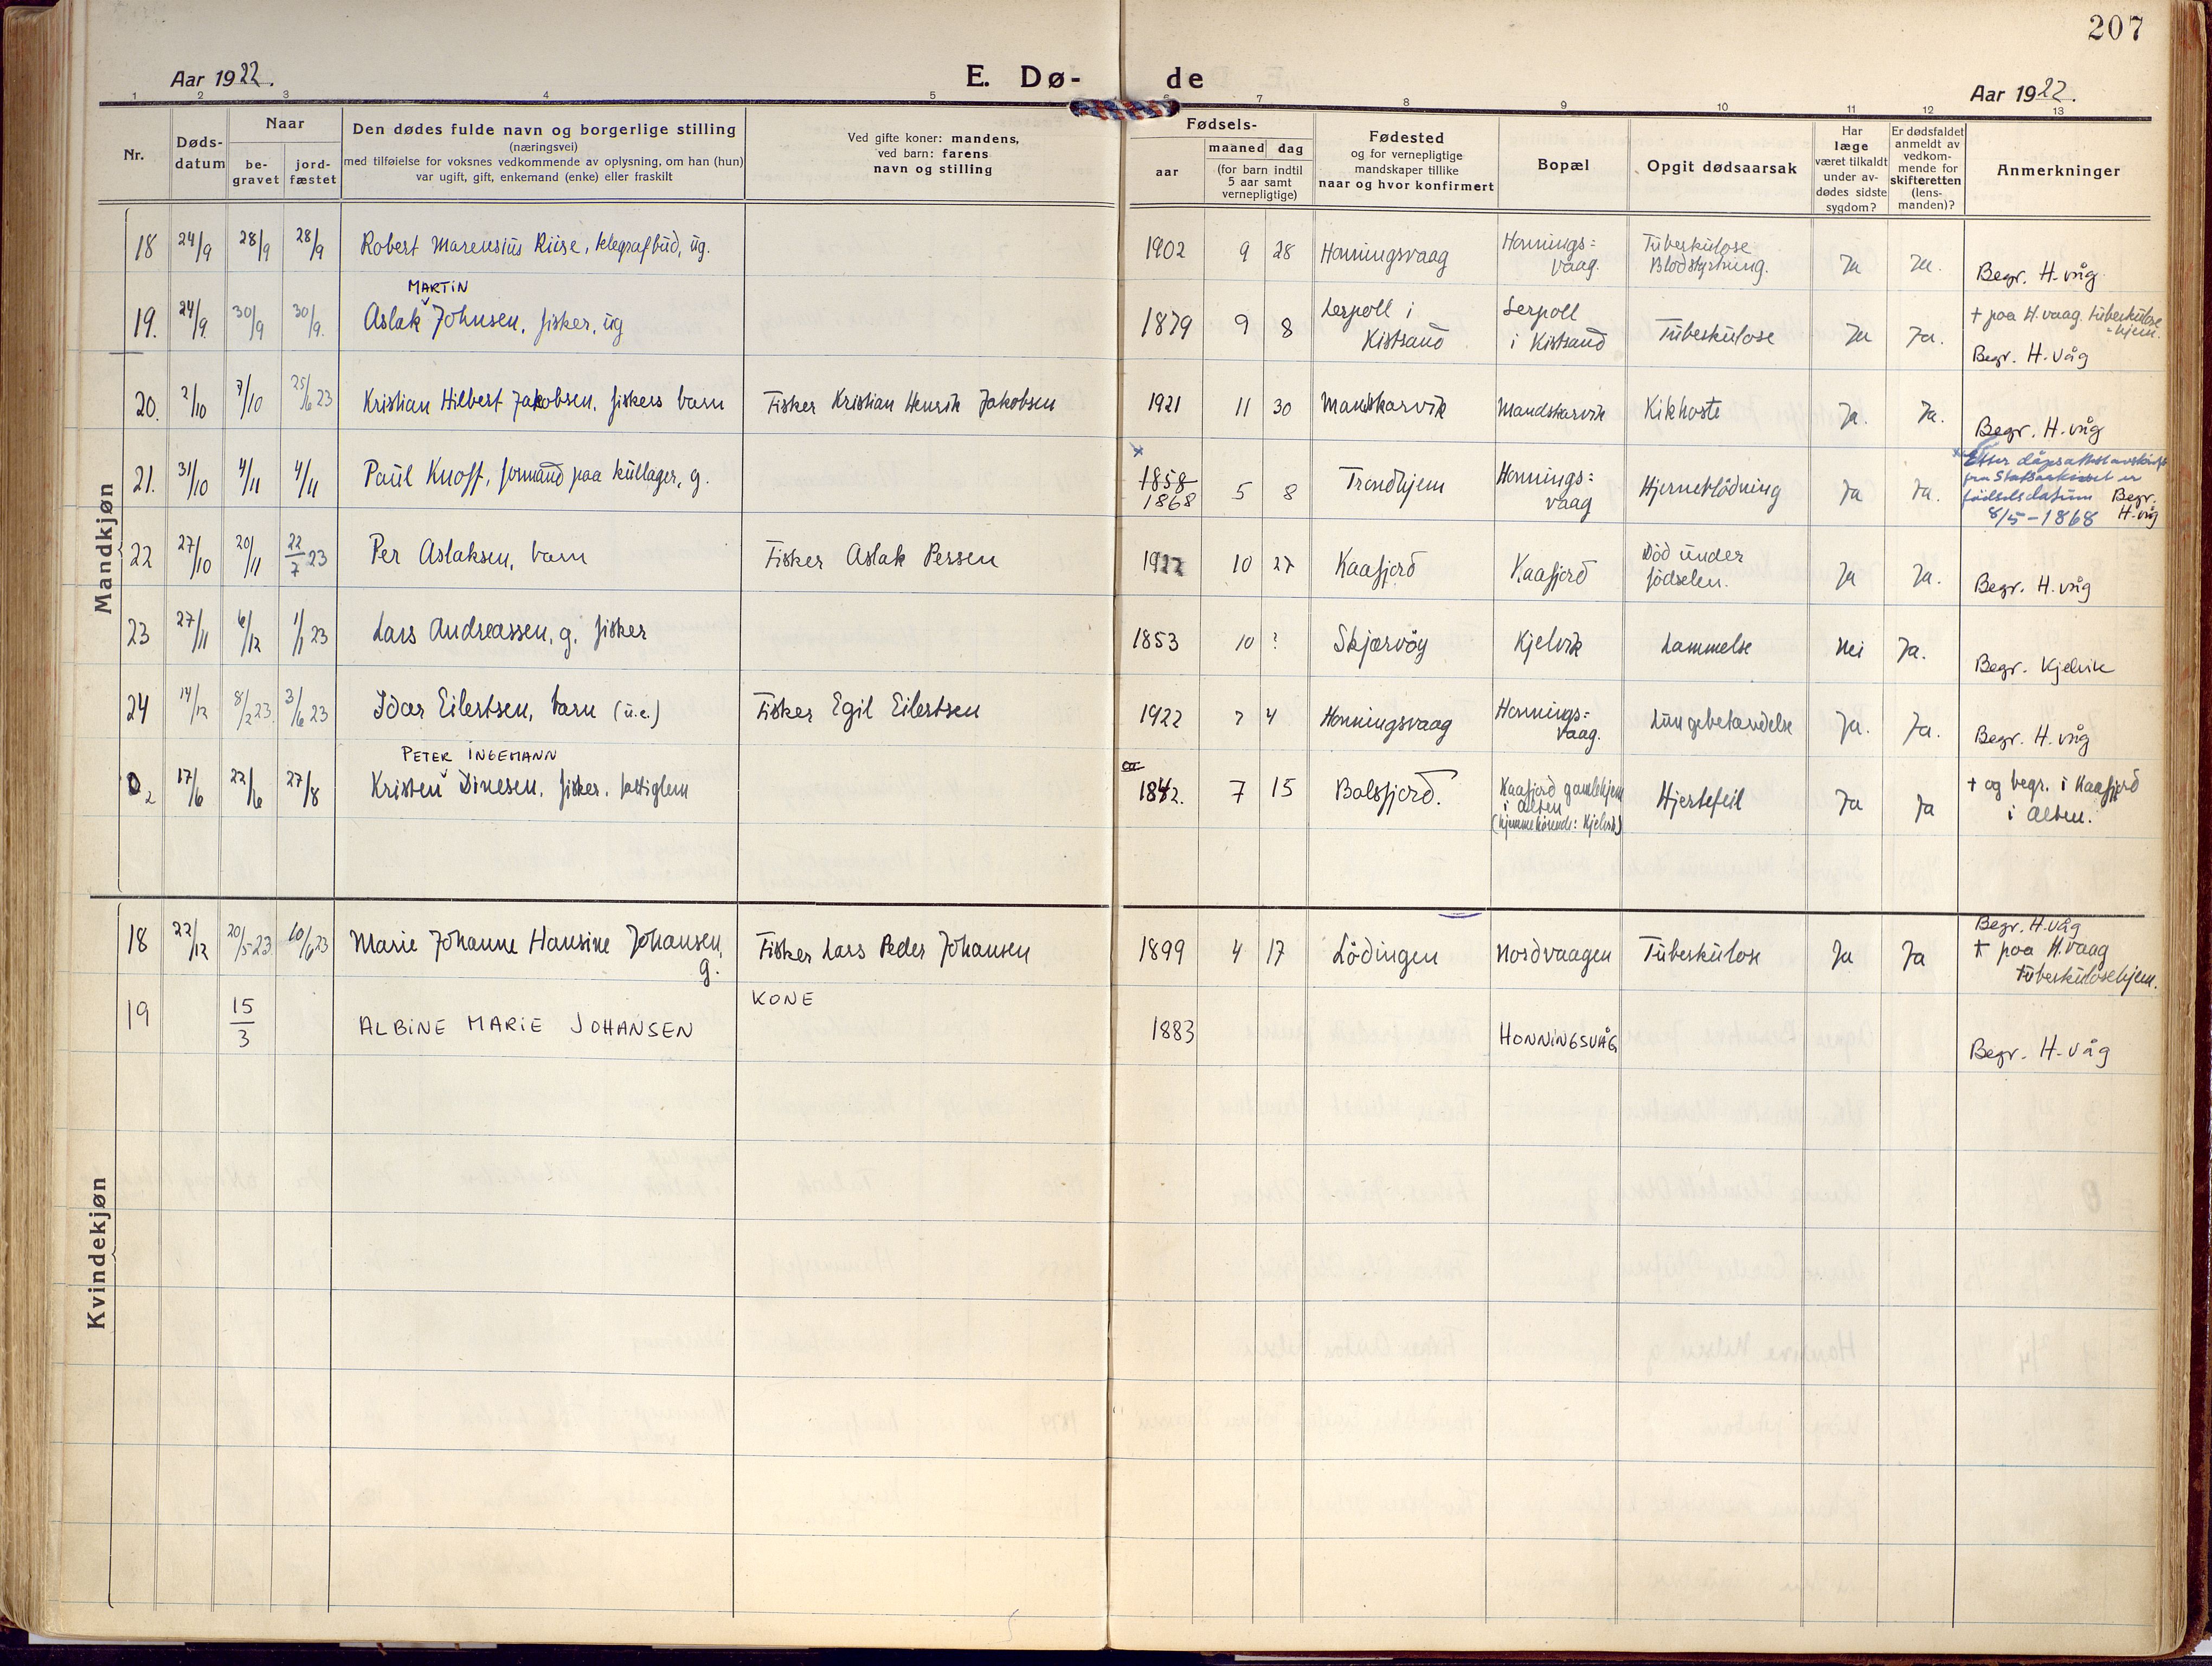 207
Aar 1922. E. Dø- de Aar 1922.
1 2 3 4 5 6 7 8 9 10 11 12 13
Nr.
Døds-
datum
Naar
be-
gravet
jord-
fæstet
Den dødes fulde navn og borgerlige stilling
(næringsvei)
med tilføielse for voksnes vedkommende av oplysning, om han (hun)
var ugift, gift, enkemand (enke) eller fraskilt
Ved gifte koner: mandens,
ved barn: farens
navn og stilling
Fødsels-
aar
maaned dag
(for barn indtil
5 aar samt
vernepligtige)
Fødested
og for vernepligtige
mandskaper tillike
naar og hvor konfirmert
Bopæl
Opgit dødsaarsak
Har
læge
været tilkaldt
under av-
dødes sidste
sygdom?
Er dødsfaldet
anmeldt av
vedkom-
mende for
skifteretten
(lens-
manden)?
Anmerkninger
Mandkjøn
18 24/9 28/9 28/9 Robert Marensius Riise, telegrafbud, ug. 1902 9 28 Honningsvaag Honnings=
vaag. Tuberkulose
Blodstyrtning. Ja Ja. Begr. H.våg
MARTIN
19. 24/9. 30/9 30/9. Aslak Johnsen, fisker, ug 1879 9 8 Lerpoll i
Kistrand Lerpoll
i Kistrand Tuberkulose Ja Ja. + paa H.vaag. tuberkulose
-hjem.
Begr. H.våg
20. 2/10 7/10 25/6 23 Kristian Hilbert Jakobsen, fiskers barn Fisker Kristian Henrik Jakobsen 1921 11 30 Mandskarvik Mandskarvik Kikhoste Ja. Ja. Begr. H.våg
21. 31/10 4/11 4/11 Paul Knoff, formand paa kullager, g. x
1858
1868 5 8 Trondhjem Honnings=
vaag Hjerneblödning Ja Ja. x Etter dåpsattest avskrift
fra Statsarkivet er
fødselsdatum Begr.
8/5-1868 H.våg
22 27/10 20/11 22/7 23 Per Aslaksen, barn Fisker Aslak Persen 1922 10 27 Kaafjord Kaafjord Död under
födselen. Ja Ja. Begr. H.våg
23 27/11 6/12 1/1 23 Lars Andreassen, g. fisker 1853 10 ? Skjærvöy Kjelvik Lammelse Nei Ja. Begr. Kjelvik
24 14/12 8/2 23. 3/6 23 Idar Eilertsen, barn (u.e.) Fisker Egil Eilertsen 1922 7 4 Honningsvaag Honnings=
vaag. Lungebetændelse Ja. Ja. Begr. H.våg
PETER INGEMANN
17/6 22/6 27/8 Kristen Dinesen, fisker, fattiglem ca
1842. 7 15 Balsfjord. Kaafjord gamlehjem
i Alten
(hjemmehörende: Kjelvik) Hjertefeil Ja Ja + og begr. i Kaafjord
i Alten.
Kvindekjøn
18 22/12 20/5 23. 10/6 23 Marie Johanne Hansine Johansen,
g. Fisker Lars Peder Johansen 1899 4 17 Lödingen Nordvaagen Tuberkulose Ja Ja Begr. H.våg
+ paa H.vaag
tuberkulosehjem.
KONE
19 15/3 ALBINE MARIE JOHANSEN 1883 HONNINGSVÅG Begr. H.våg